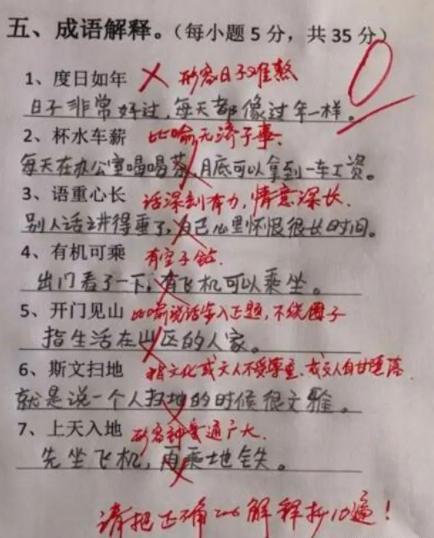 五、成语解释。（每小题5分，共35分）
0
1、度日如年 形容日子难熬
日子非常好过，每天都像过年一样。
2、杯水车薪 比喻无济于事.
每天在办公室喝喝茶，月底可以拿到一车工资。
3、语重心长 话深刻有力，情意深长.
别人话讲得重了，自己心里怀恨很长时间。
4、有机可乘 有空子钻.
出门看了一下，有飞机可以乘坐。
5、开门见山 比喻说话等入正题，不绕圈子
指生活在山区的人家。
6、斯文扫地 指文化或文人不受尊重.或文人自甘堕落.
就是说一个人扫地的时候很文雅。
7、上天入地 形容神通广大.
先坐飞机，再乘地铁。
请把正确的解释抄10遍！